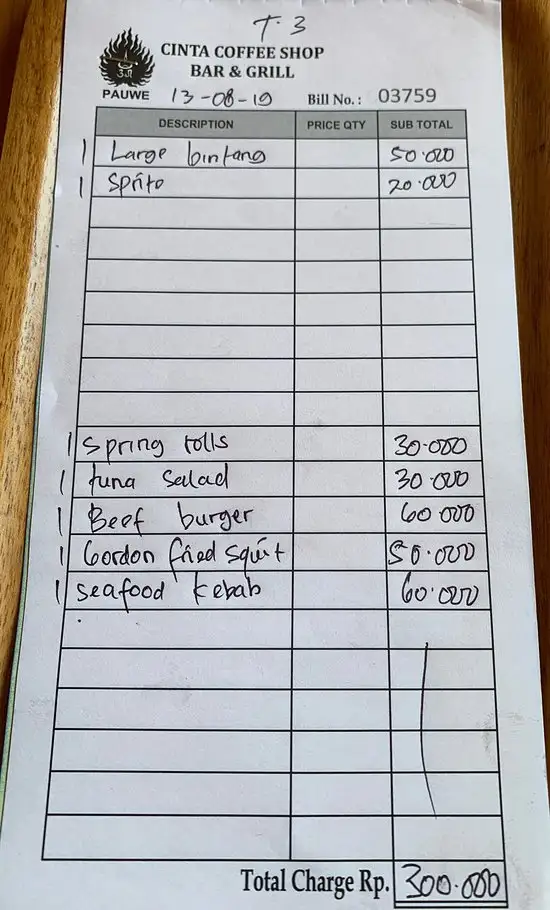 T.3
CINTA COFFEE SHOP
BAR & GRILL
PAUWE 13-08-19 Bill No.: 03759
DESCRIPTION PRICE QTY SUB TOTAL
1 Large bintang 50.000
1 Sprite 20.000
1 Spring rolls 30.000
1 tuna salad 30.000
1 Beef burger 60 000
1 Gordon fried squit 50.000
1 seafood kebab 60.000
Total Charge Rp. 300.000